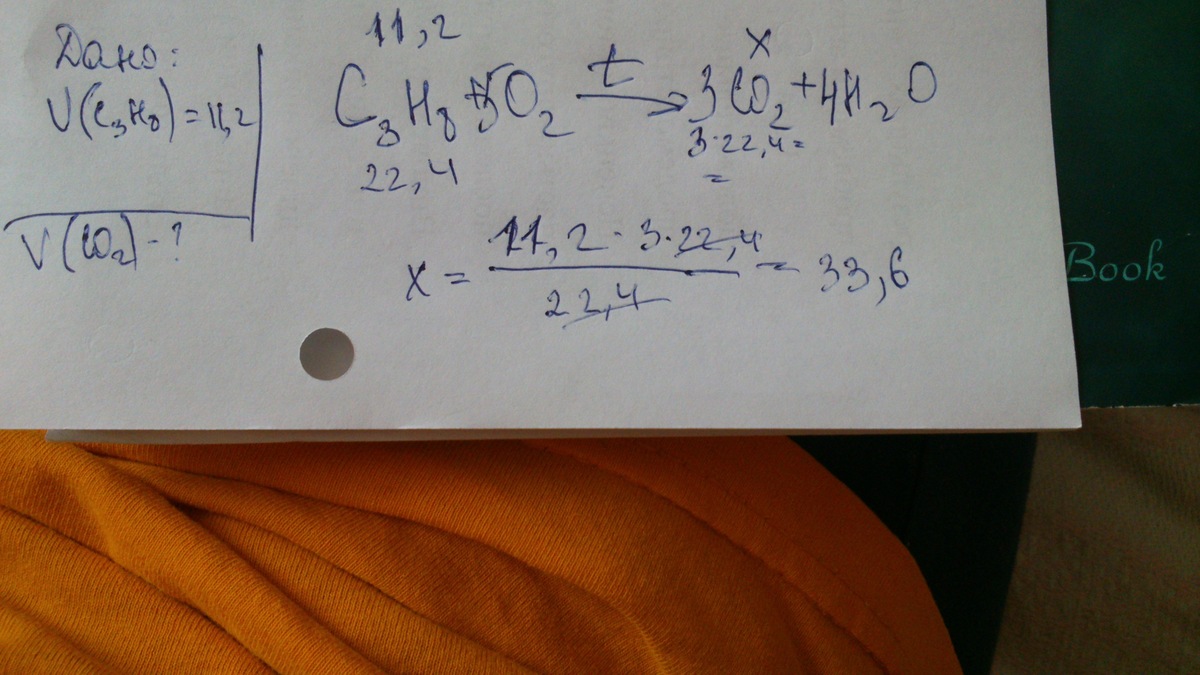 Дано:
V(C₃H₈)=11,2
V(CO₂)-?
11,2
x
C₃H₈+5O₂ t→ 3CO₂+4H₂O
22,4
3·22,4=
=
x = 11,2·3·22,4 / 22,4 = 33,6
Book